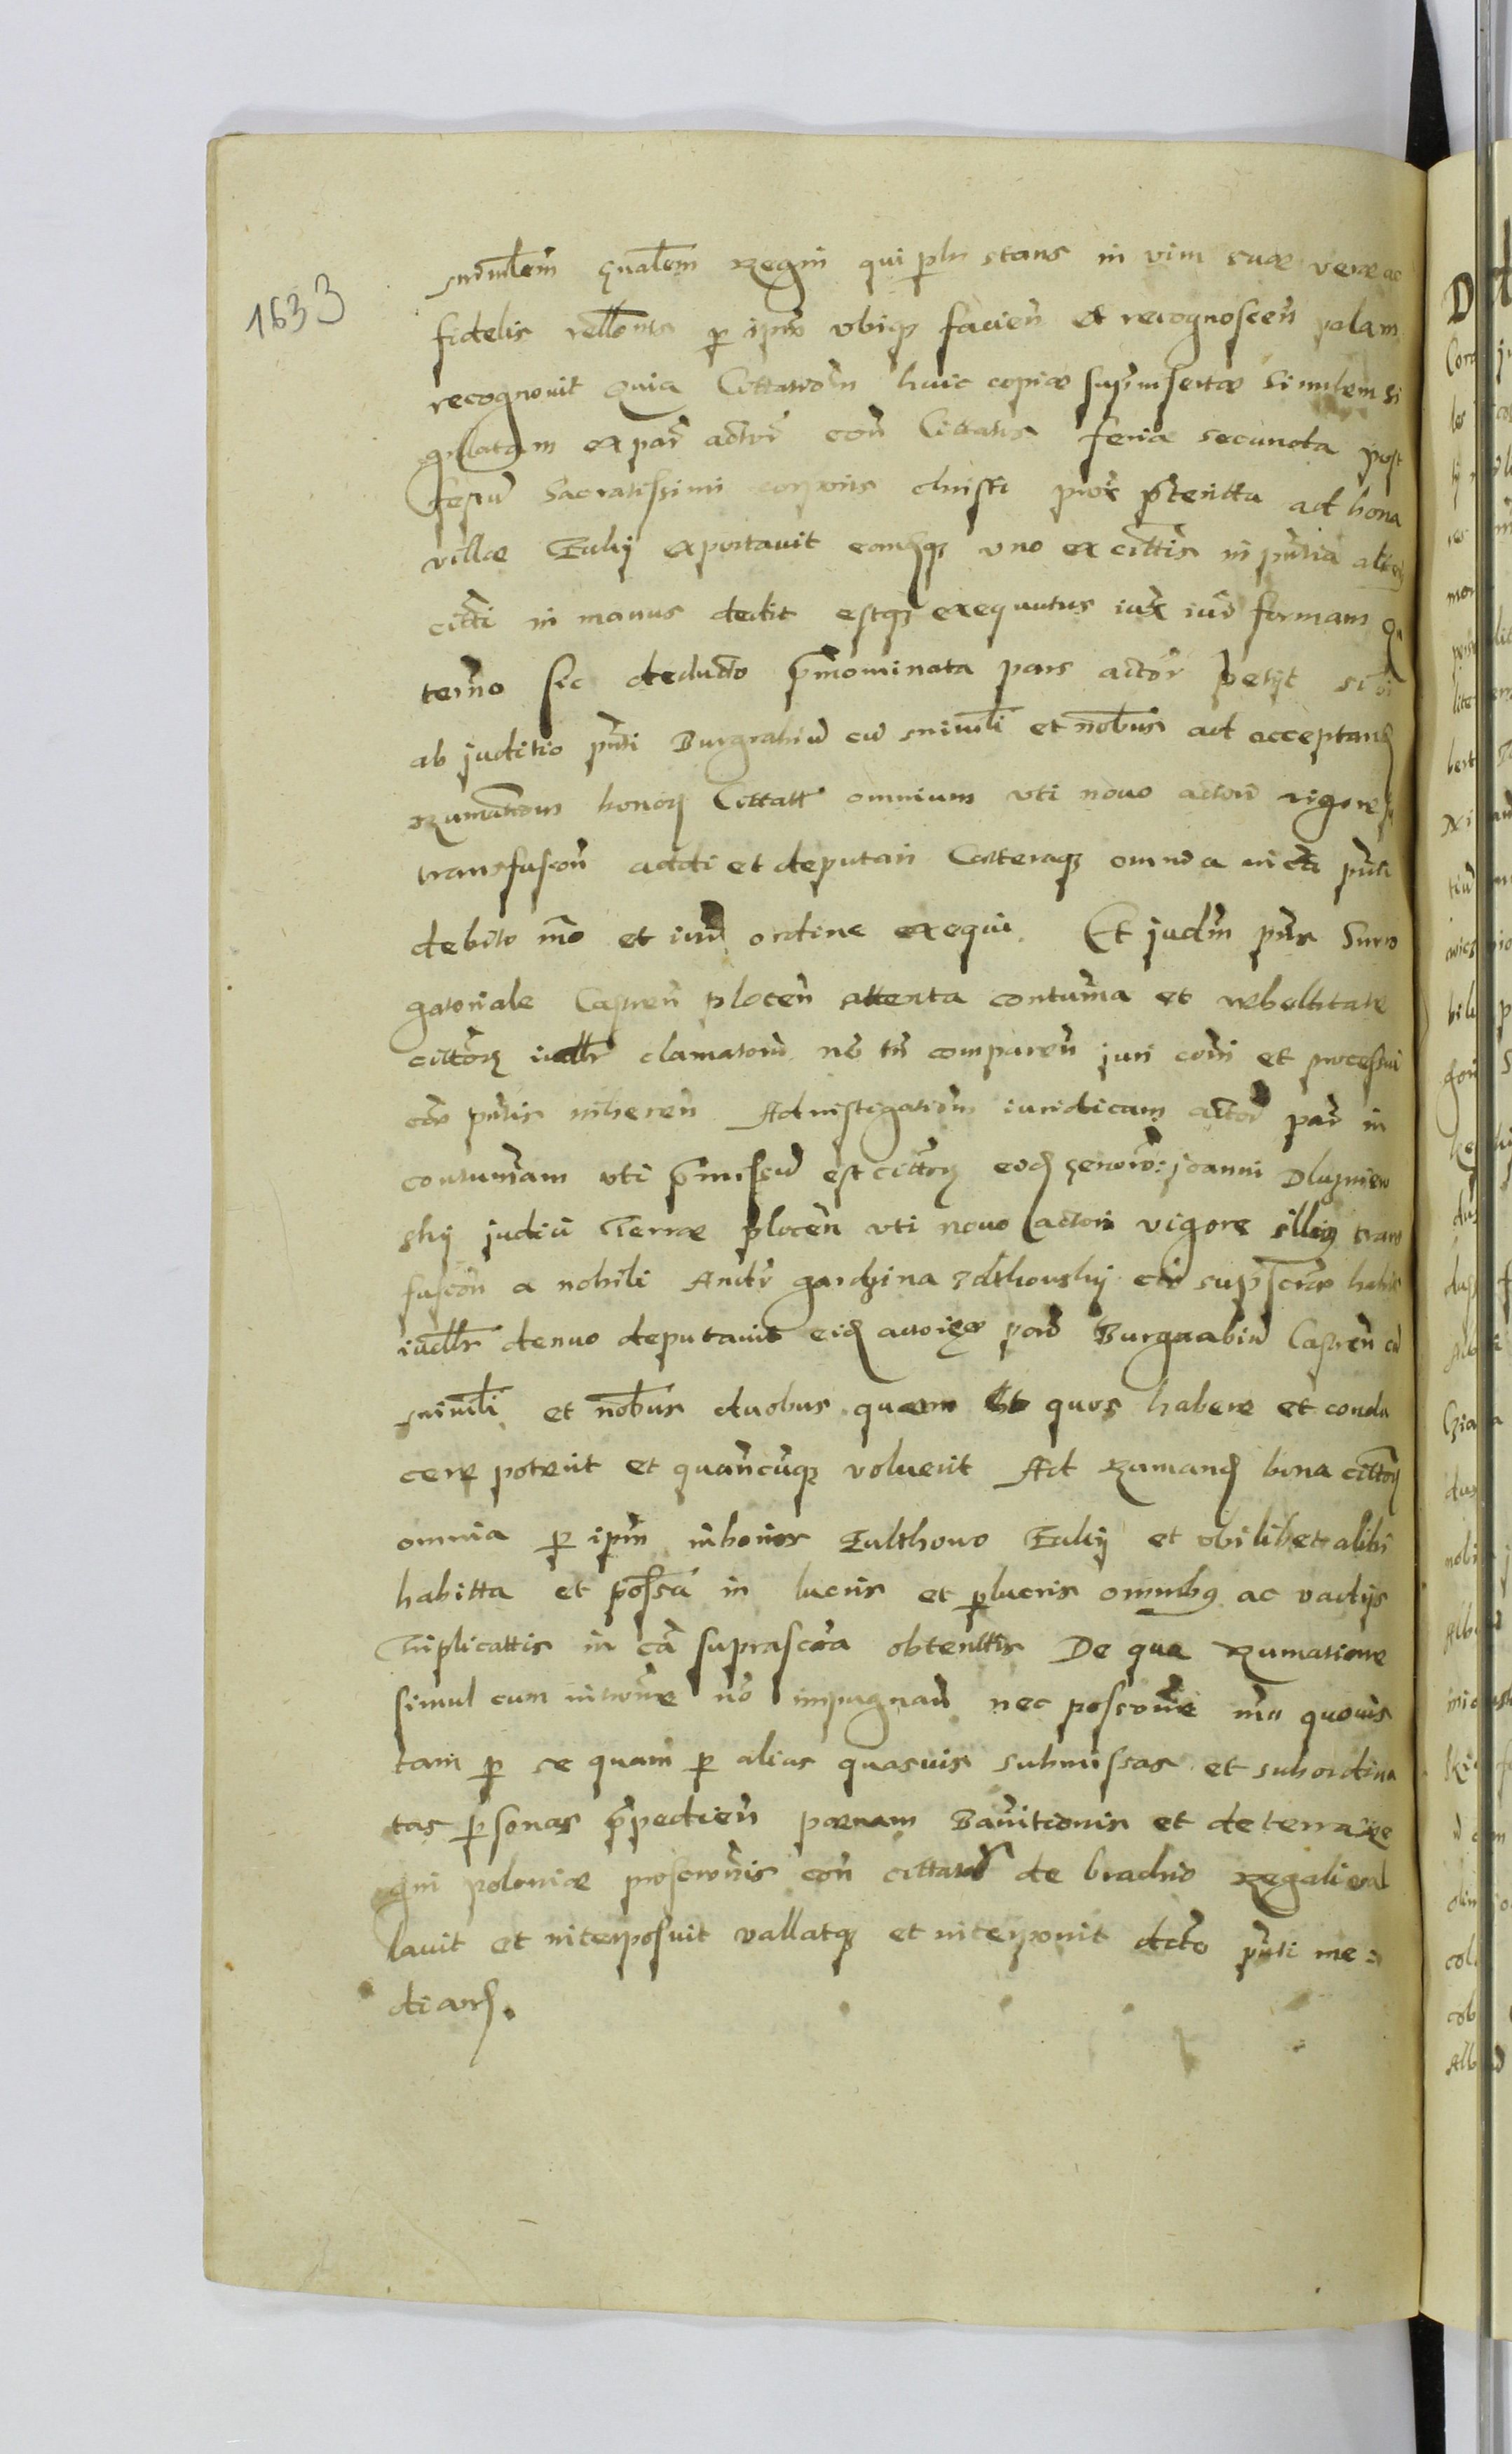 1633
ministlem gnalem Regni qui pln stans in vim suæ veræ ac
fidelis rellonis p ipm vbiqz facien et recognoscen palam
recognouit quia Cittationem huic copiæ superinsertæ similem si
gillatam ex par actor con Cittatis feria secunda post
festu Sacratissimi corporis christi prox preteritta ad bona
villæ Tulij exportauit eamqz vno ex cittis in pntia alter
citti in manus dedit estqz exequutus iux iur formam Quo
termo sic deducto prænominata pars actor petyt sibi
ab juditio pnti Burgrabiu cu ministli et nobus ad acceptand
Rumationem bonor Cittatt omnium vti nouo actori vigore
transfusion addi et deputari Cæteraqz omnia in cti pnti
debito mo et iuris ordine exequi. Et judm pns Surro
gatoriale Castren plocen attenta contumia et rebellitate
cittor iudlr clamatoru no tn comparen juri coni et processui
cæ pntis inheren Ad instigationem iuridicam actor par in
contumiam vti præmissu est cittor eod generos: joanni Dlugniew
skij judici Terræ plocen vti nouo actori vigore illius trans
fusion a nobili Andr gardzina Zdthowskij cir suprascra habit
iudlr denuo deputauit eid actoreæ parti Burgrabiu Castren cu
ministli et nobus duobus quem et quos habere et condu
cere poterit et quancunqz voluerit Ad Rumand bona cittor
omnia p ipm in bonis Tulthowo Tulij et vbilibet alibi
habitta et possa in lucris et plucris omnibus ac vadijs
Triplicattis in ca suprascra obtenttis De qua Rumatione
simul cum introne no impugnan nec poscione mo quouis
tam p se quam p alias quasuis submissas et subordina
tas psonas præpedien pœnam Banitionis et de terra Re
gni poloniæ proscronis con cittatos de brachio Regali val
lauit et interposuit vallatqz et interponit dcto pnti me=
diant.